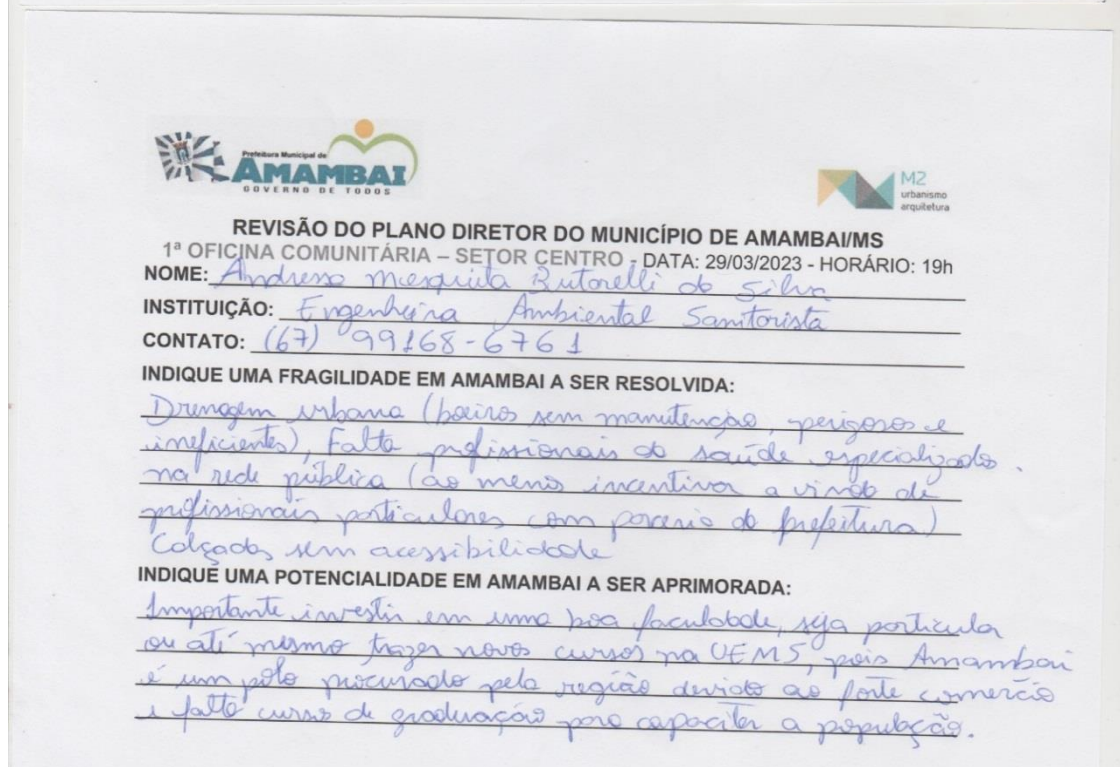 Prefeitura Municipal de
AMAMBAI
GOVERNO DE TODOS
M2
urbanismo
arquitetura
REVISÃO DO PLANO DIRETOR DO MUNICÍPIO DE AMAMBAI/MS
1ª OFICINA COMUNITÁRIA – SETOR CENTRO - DATA: 29/03/2023 - HORÁRIO: 19h
NOME: Andressa Mesquita da Silva
INSTITUIÇÃO: Engenheira Ambiental Sanitarista
CONTATO: (67) 99168-6761
INDIQUE UMA FRAGILIDADE EM AMAMBAI A SER RESOLVIDA:
Drenagem urbana (boeiros sem manutenção, perigosos e
ineficientes), Falta profissionais da saúde especializados.
na rede pública (ao menos incentivar a vinda de
profissionais particulares com parceria da prefeitura)
Calçadas sem acessibilidade
INDIQUE UMA POTENCIALIDADE EM AMAMBAI A SER APRIMORADA:
Importante investir em uma boa faculdade, seja particular
ou até mesmo trazer novos cursos na UEMS, pois Amambai
é um pólo procurado pela região devido ao forte comercio
e falta curso de graduação para capacitar a população.